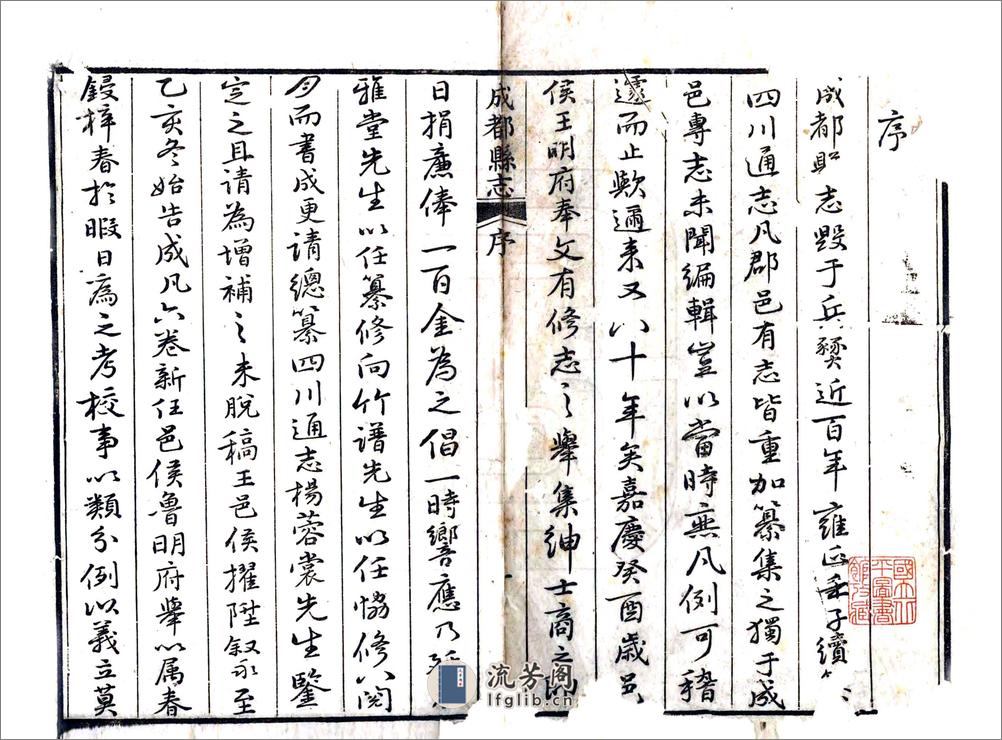 序
成都縣志毀于兵燹近百年雍正壬子續
四川通志凡郡邑有志皆重加纂集之獨于成
邑專志未聞編輯豈以當時無凡例可稽
遽而止歟邇來又八十年矣嘉慶癸酉歲邑
侯王明府奉文有修志之舉集紳士商之
成都縣志
序
一
日捐廉俸一百金為之倡一時響應乃延
雅堂先生以任纂修向竹譜先生以任協修八閱
月而書成更請總纂四川通志楊蓉裳先生鑒
定之且請為增補之未脫稿王邑侯擢陞叙永至
乙亥冬始告成凡六卷新任邑侯魯明府舉以屬春
鋟梓春於暇日為之考校事以類分例以義立莫
國立北
平圖書
館收藏
流芳阁
lfglib.cn